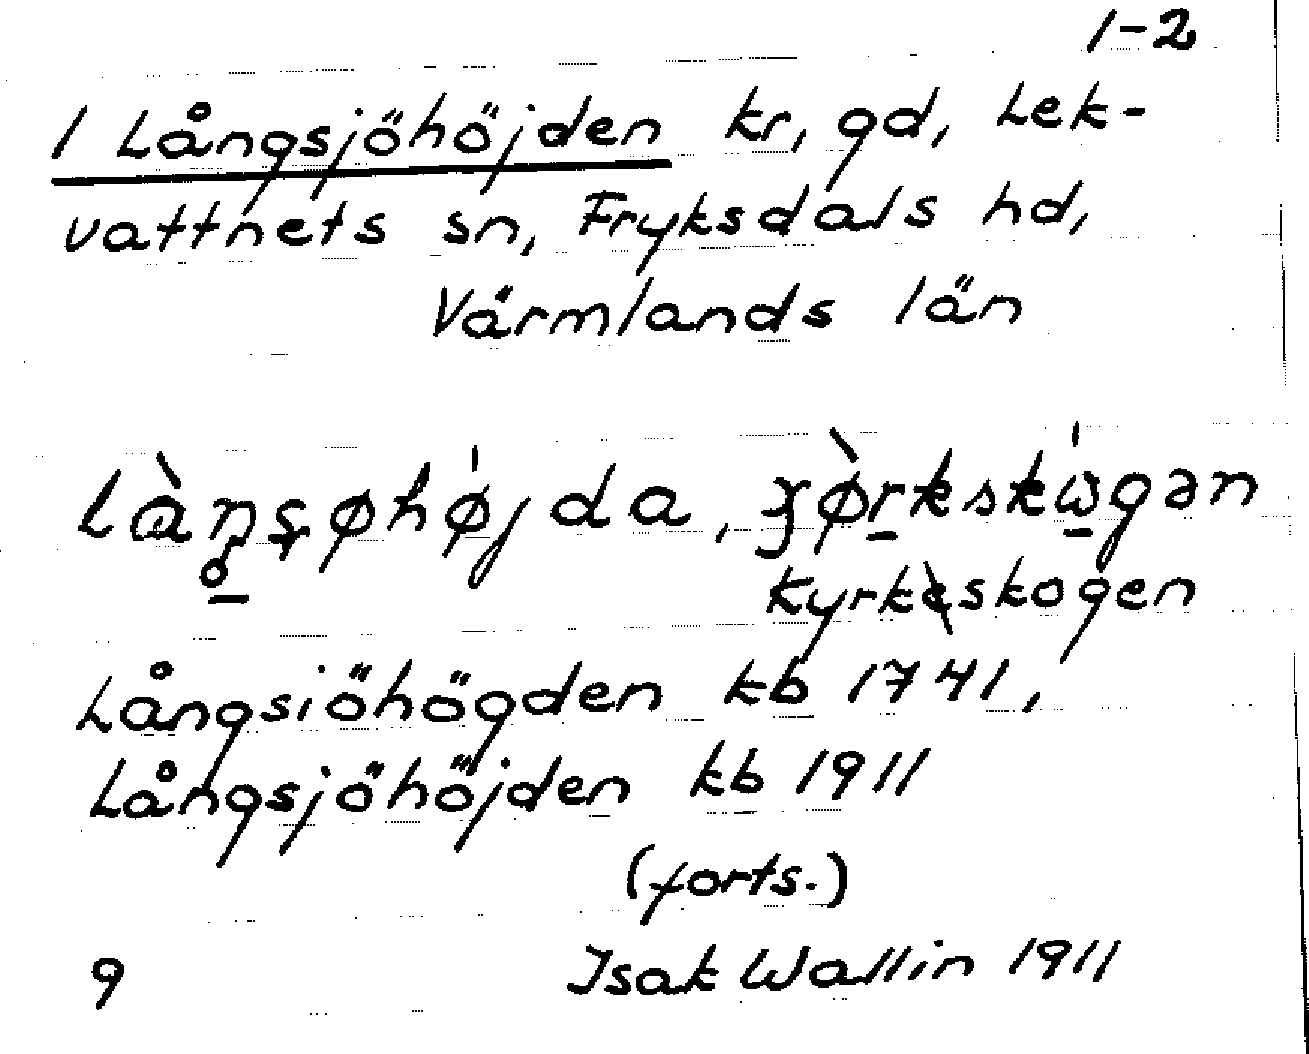 1-2
1 Långsjöhöjden kr, gd, Lek-
vattnets sn, Fryksdals hd,
Värmlands län
kyrkskogen
Långsiöhögden kb 1741,
Långsjöhöjden kb 1911
(forts.)
9 Isak Wallin 1911